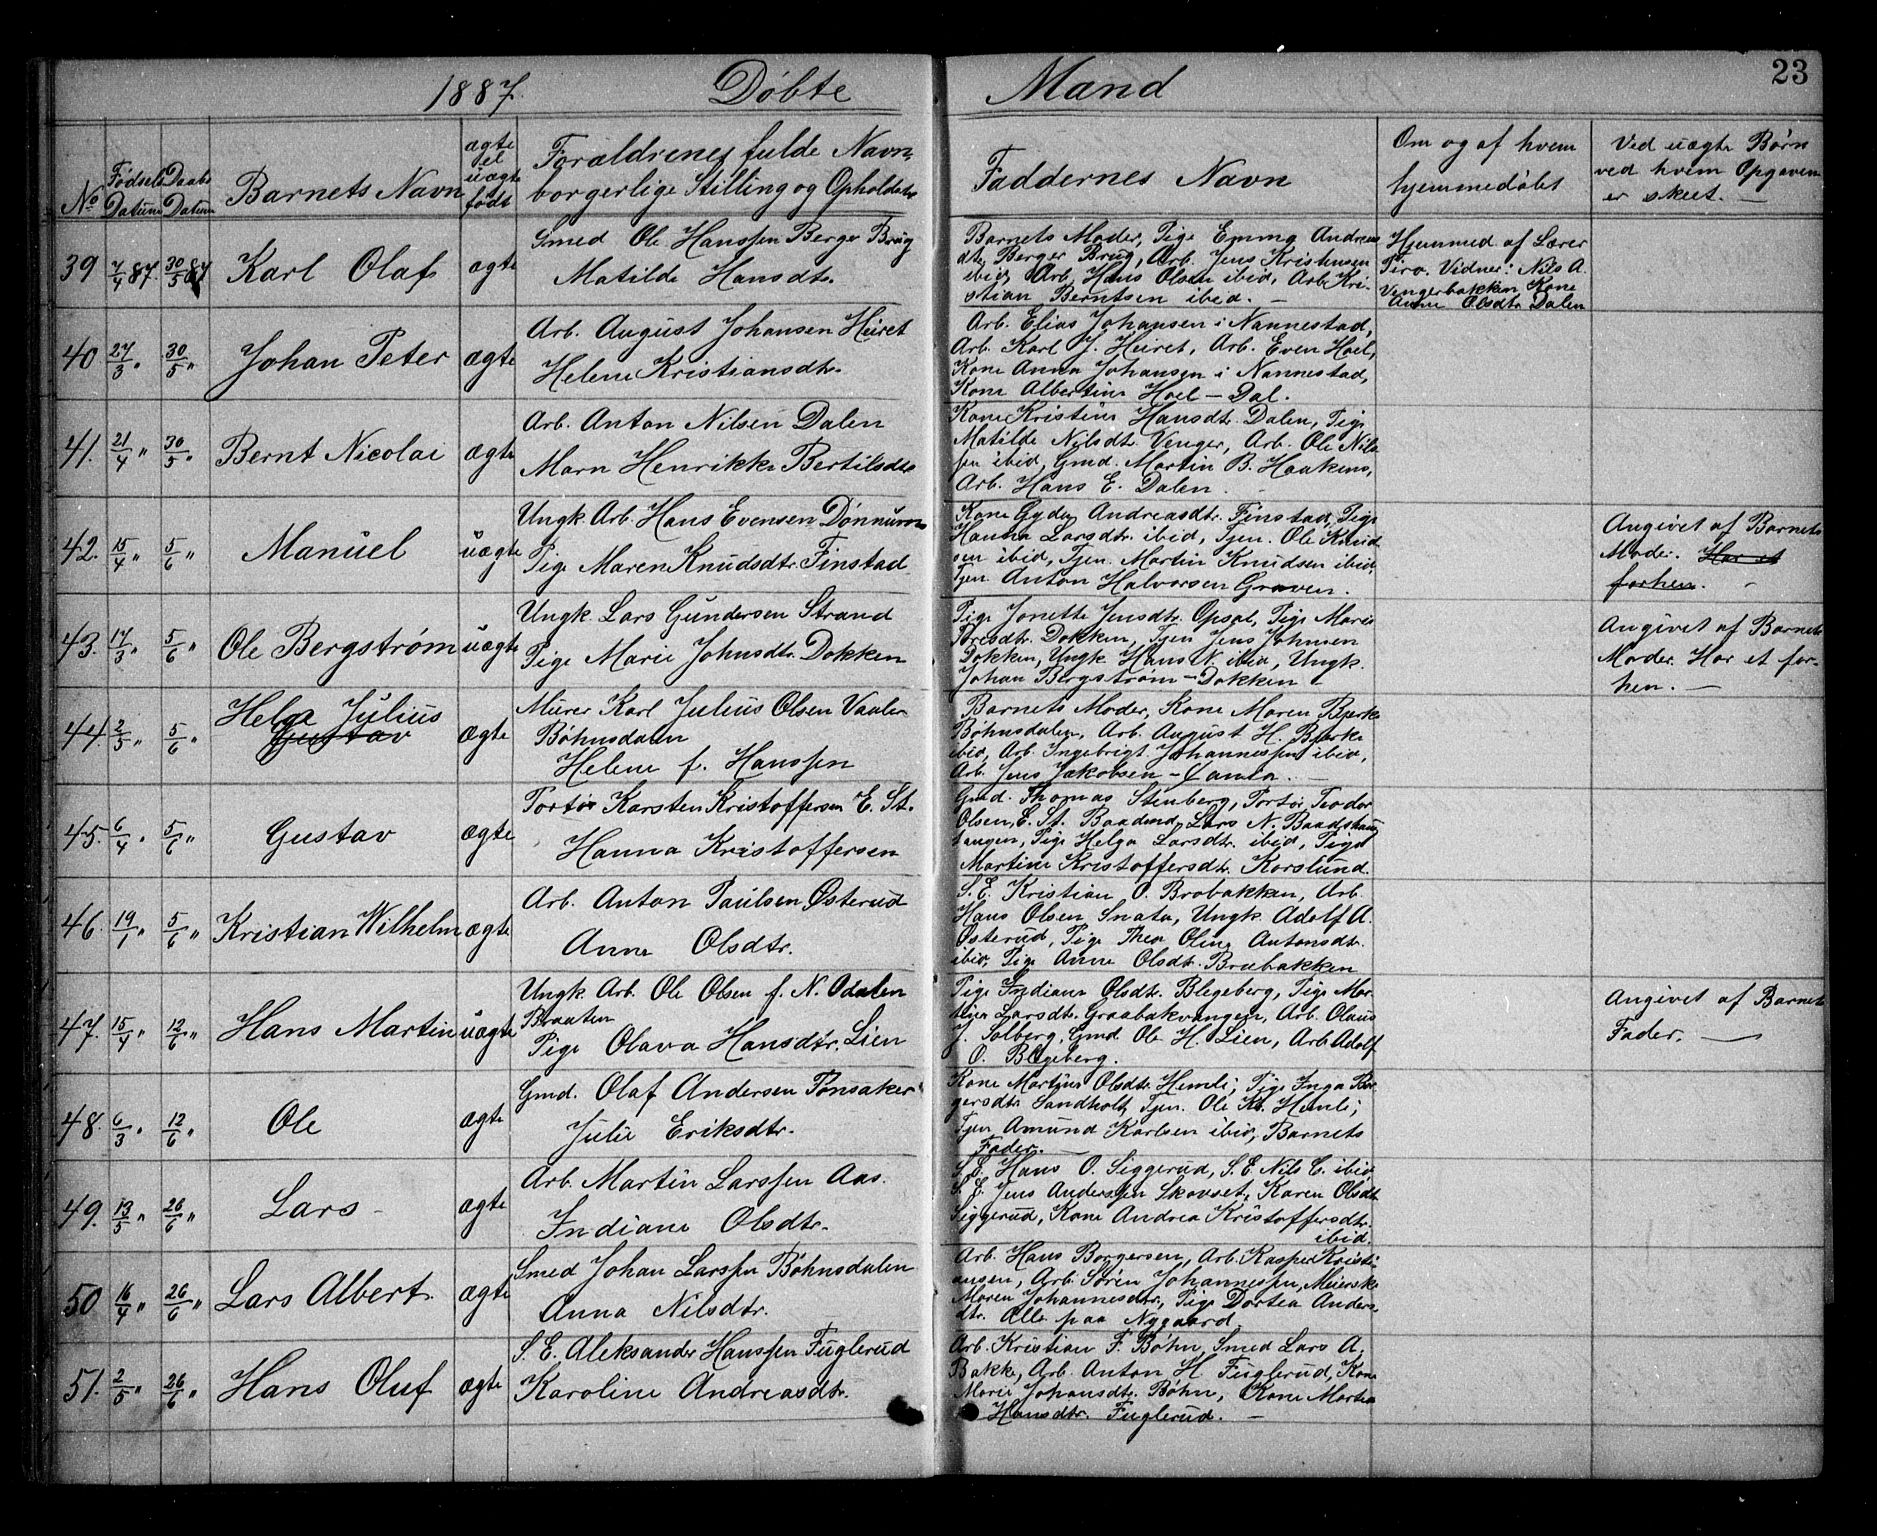 23
1887. Døbte Mand
No
Fødsels Datum
Daabs Datum
Barnets Navn
ægte el uægte født
Forældrenes fulde Navn,
borgerlige Stilling og Opholdsst.
Faddernes Navn
Om og af hvem
hjemmedøbt
Ved uægte Børn
ved hvem Opgaven
er skeet. —
39 7/4 87. 30/5 87 Karl Olaf ægte
Smed Ole Hanssen Berger Brug
Matilde Hansdtr.
Barnets Moder, Pige Emma Andreas
dtr. Berger Brug, Arb. Jens Kristensen
ibid, Arb. Hans Olsen ibid, Arb. Kri-
stian Berntsen ibid. —
Hjemmed af Lærer
Tiro. Vidner: Nils A.
Vengerbakken Kone
Anne Olsdtr. Dalen
40 27/3 " 30/5 " Johan Peter ægte
Arb. August Johansen Heiret
Helene Kristiansdtr.
Arb. Elias Johansen i Nannestad,
Arb. Karl J. Heiret, Arb. Even Hoel,
Kone Anna Johansen i Nannestad,
Kone Albertine Hoel — Dal.
41. 21/4 " 30/5 " Bernt Nicolai ægte
Arb. Anton Nilsen Dalen
Marn Henrikke Bertilsdtr
Kone Kristine Hansdt. Dalen, Pige
Matilde Nilsdtr. Venger, Arb. Ole Nils
sen ibid, Gmd. Martin B. Haakens,
Arb. Hans E. Dalen.
42. 15/4 " 5/6 " Manuel uægte
Ungk. Arb. Hans Evensen Dønnum
Pige Maren Knudsdtr. Finstad
Kone Gyda Andreasdtr. Finstad, Pige
Hanna Larsdtr. ibid, Tjen. Ole Knud
sen ibid, Tjen. Martin Knudsen ibid,
Tjen. Anton Halvorsen Graven.
Angivet af Barnets
Moder. Har et
forhen. —
43. 17/3 " 5/6 " Ole Bergstrøm uægte
Ungk. Lars Gundersen Strand
Pige Marie Johnsdtr. Dokken
Pige Jonette Jensdtr. Opsal, Pige Marie
Dokken, Tjen Jens Johnsen
Dokken, Ungk. Hans N. ibid, Ungk.
Johan Bergstrøm — Dokken
Angivet af Barnets
Moder. Har et for-
hen. —
44. 2/5 " 5/6 " Helge Julius
Gustav ægte
Murer Karl Julius Olsen Vaaler
Bøhnsdalen
Helene f. Hanssen
Barnets Moder, Kone Maren Bjerke
Bøhnsdalen, Arb. August H. Bjerke
ibid, Arb. Ingebrigt Johannessen ibid,
Arb. Jens Jakobsen —
45. 6/4 " 5/6 " Gustav ægte
Portør Karsten Kristoffersen E. St.
Hanna Kristoffersen
Gmd. Thomas Stenberg, Portør Teodor
Olsen, E. St. Baadmd. Lars N. Baadshaug
tangen, Pige Helga Larsdtr. ibid, Pige
Martine Kristoffersdtr. Korslund.
46. 19/1 " 5/6 " Kristian Wilhelm ægte
Arb. Anton Paulsen Østerud
Anne Olsdtr.
S. E. Kristian O. Brobakken, Arb.
Hans Olsen Snata, Ungk. Adolf A.
Østerud, Pige Thea Oline Antonsdtr.
ibid, Pige Anne Olsdtr. Brobakken
47. 15/4 " 12/6 " Hans Martin uægte
Ungk. Arb. Ole Olsen f. N. Odalen
Braaten
Pige Olava Hansdtr. Lien
Pige Indiane Olsdtr. Blegeberg, Pige Mar-
tine Larsdtr. Graabakvangen, Arb. Olaus
J. Solberg, Gmd. Ole H. Lien, Arb. Adolf
O. Blegeberg.
Angivet af Barnets
Fader. —
48. 6/3 " 12/6 " Ole ægte
Gmd. Olaf Andersen Tønsaker
Julie Eriksdtr.
Kone Martine Olsdtr. Hemli; Pige Inga Bør
gersdtr. Sandholt, Tjen. Ole Kr. Hemli;
Tjen Amund Karlsen ibid, Barnets
Fader. —
49. 13/5 " 26/6 " Lars ægte
Arb. Martin Larssen Aas.
Indiane Olsdtr.
S. E. Hans O. Siggerud, S. E. Nils C. ibid,
S. E. Jens Anderssen Skovset, Karen Olsdtr.
Siggerud, Kone Andrea Kristoffersdtr.
ibid.
50 16/4 " 26/6 " Lars Albert. ægte
Smed Johan Larssen Bøhnsdalen
Anna Nilsdtr.
Arb. Hans Borgersen, Arb. Kasper Kristi-
ansen, Arb. Søren Johannessen, Meierske
Maren Johannesdtr., Pige Dortea Anders-
dtr. Alle paa Nygaard.
51. 2/5 " 26/6 " Hans Oluf ægte
S. E. Aleksander Hanssen Fuglerud
Karoline Andreasdtr.
Arb. Kristian F. Bøhn, Smed Lars A.
Bakke, Arb. Anton H. Fuglerud, Kone
Marie Johansdtr. Bøhn, Kone Martea
Hansdtr. Fuglerud. —